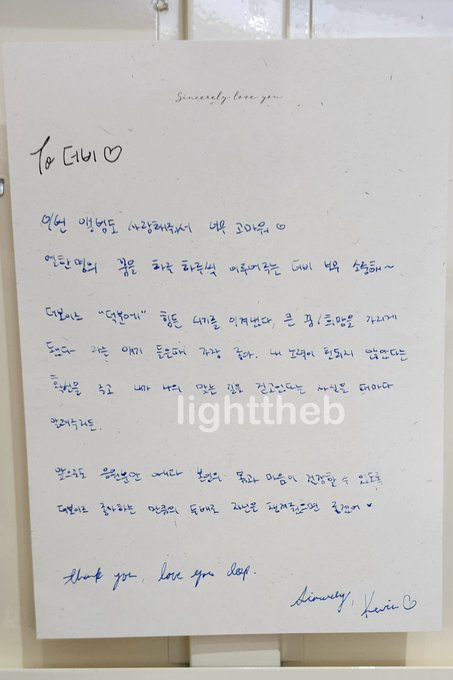 Sincerely love you
To 더비♡
이번 앨범도 사랑해줘서 너무 고마워♡
열한명의 꿈을 하루 하루씩 이루어주는 더비 너무 소중해~
더보이즈 "덕분에" 힘든 시기를 이겨냈다, 큰 꿈/희망을 가지게
됐다 라는 얘기 들을때 가장 좋아. 내 노력이 헛되지 않았다는
확신을 주고 내가 나의 맞는 길을 걷고있다는 사실을 더비가
알려주거든.
lighttheb
앞으로도 응원할만 아니라 본연의 몸과 마음이 건강할 수 있도록
더보이즈 좋아하는 만큼의 두배로 자신을 챙겨줬으면 좋겠어♥
thank you, love you deep.
Sincerely,
Kevin♡